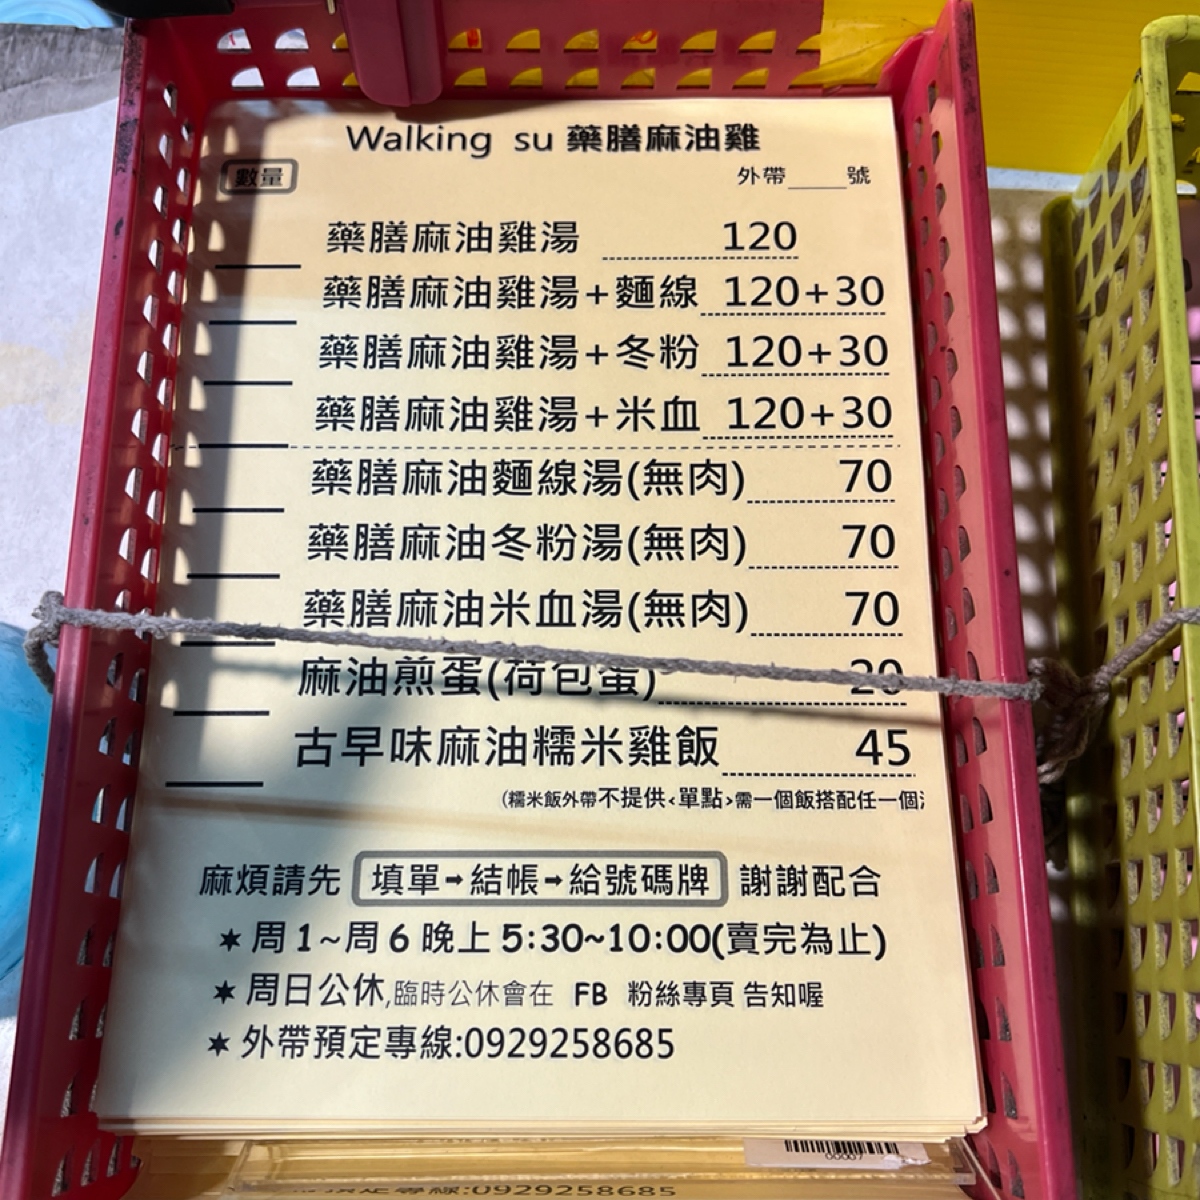 Walking su 藥膳麻油雞
數量 外帶____號
藥膳麻油雞湯 120
藥膳麻油雞湯+麵線 120+30
藥膳麻油雞湯+冬粉 120+30
藥膳麻油雞湯+米血 120+30
藥膳麻油麵線湯(無肉) 70
藥膳麻油冬粉湯(無肉) 70
藥膳麻油米血湯(無肉) 70
麻油煎蛋(荷包蛋) 20
古早味麻油糯米雞飯 45
(糯米飯外帶不提供<單點>需一個飯搭配任一個
麻煩請先 填單→結帳→給號碼牌 謝謝配合
★ 周1~周6 晚上 5:30~10:00(賣完為止)
★ 周日公休,臨時公休會在 FB 粉絲專頁 告知喔
★ 外帶預定專線:0929258685
00007
預定專線:0929258685